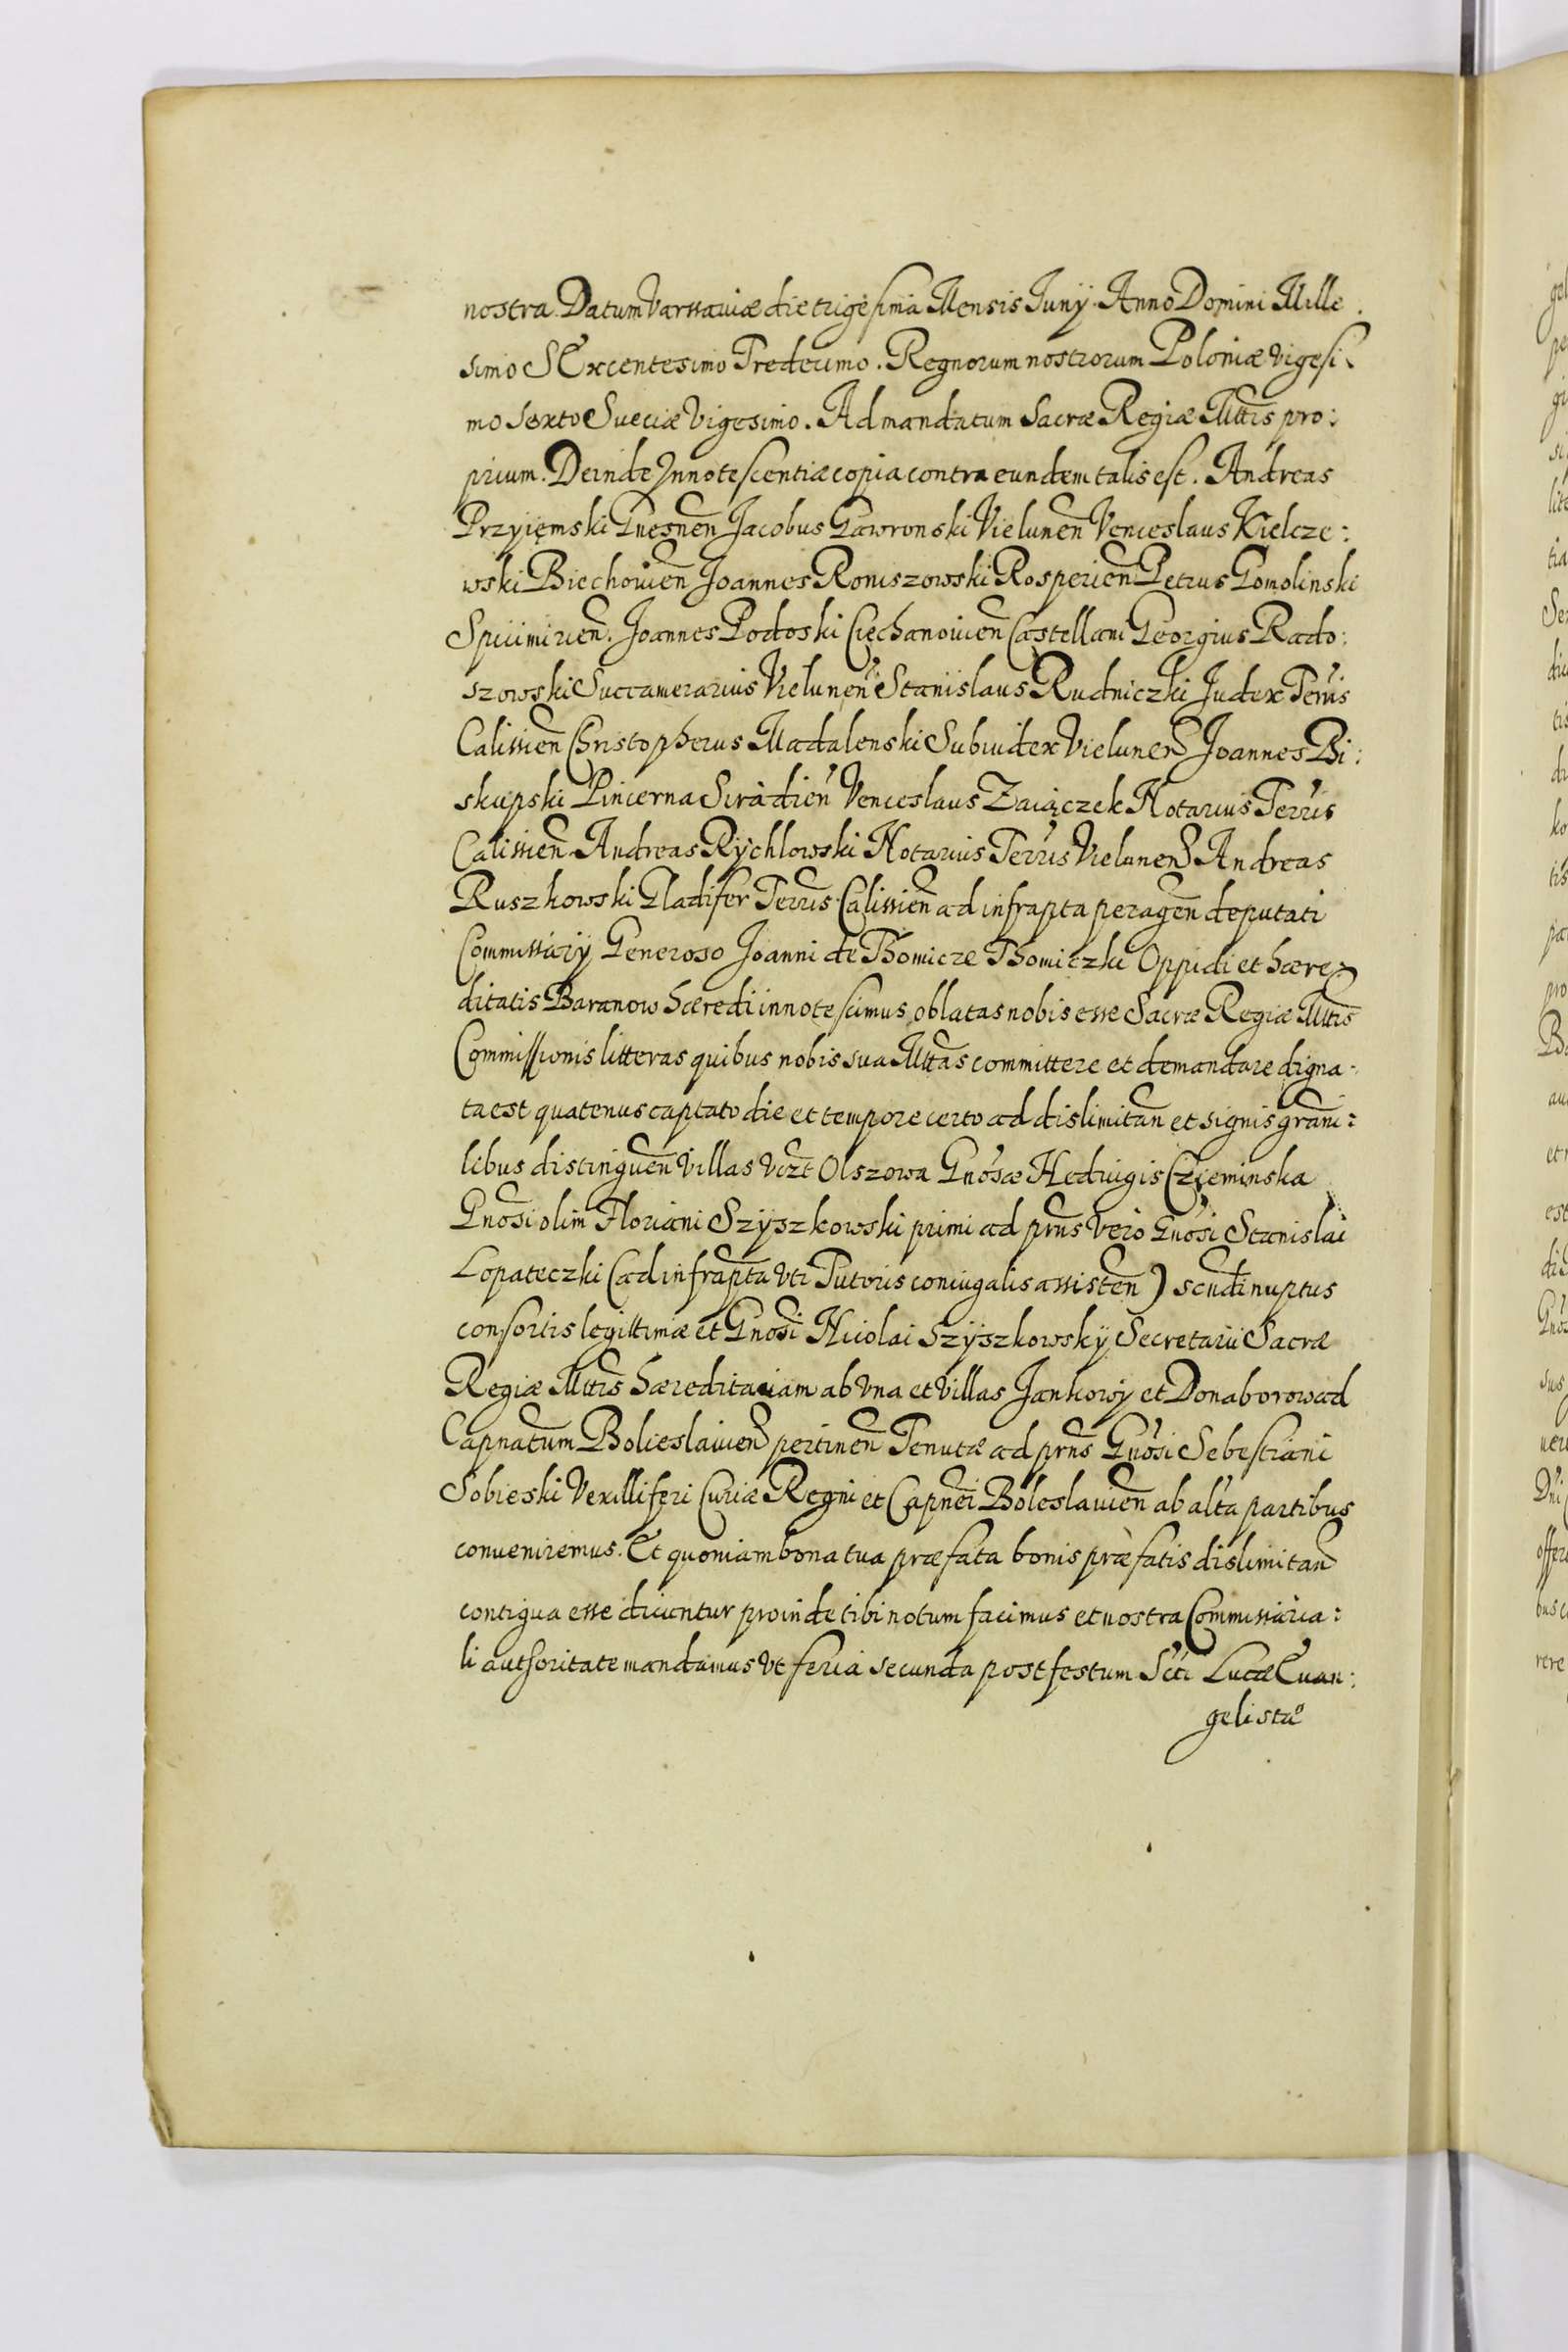 nostra. Datum Varssaviæ die trigesima Mensis Junÿ. Anno Domini Mille
simo SExcentesimo Tredecimo. Regnorum nostrorum Poloniæ Vigesi
mo Sexto Sueciæ Vigesimo. Ad mandatum Sacræ Regiæ Mttis pro:
prium. Deinde Innotescentiæ copia contra eundem talis est. Andreas
Przyięmski Gnesnen Jacobus Gawronski Vielunen Venceslaus Kielcze:
wski Biechouien Joannes Roniszowski Rosperien Petrus Gomolinski
Spicimirien. Joannes Podoski Cięchanouien Castellani Georgius Rado:
szowski Succamerarius Vielunen Stanislaus Rudniczki Judex Terris
Calissien Christopherus Madalenski Subiudex Vielunen Joannes Bi:
skupski Pincerna Siradien Venceslaus Zaiączek Notarius Terris
Calissien Andreas Rychlowski Notarius Terris Vielunen Andreas
Ruszkowski Gladifer Terris Calissien ad infrapta peragen deputati
Commissarÿ Generoso Joanni de Thomicze Thomiczki Oppidi et hære
ditatis Baranow hæredi innotescimus oblatas nobis esse Sacræ Regiæ Mttis
Commissionis litteras quibus nobis sua Mttas committere et demandare digna
ta est quatenus captato die et tempore certo ad dislimitan et signis grani:
libus distinguen Villas Vczt Olszowa Gnosæ Heduigis Czieminska
Gnosi olim Floriani Szyszkowski primi ad prns Vero Gnosi Stanislai
Lopateczki (ad infrapta Vti Tutoris coniugalis assisten) scndi nuptus
consortis legittimæ et Gnosi Nicolai Szÿszkowskÿ Secretarii Sacræ
Regiæ Mttis hæreditariam ab Vna et Villas Jankowy et Donaborow ad
Capnatum Bolieslauien pertinen Tenutæ ad prns Gnosi Sebestiani
Sobieski Vexilliferi Curiæ Regni et Capnei Boleslauien ab alta partibus
conueniremus. Et quoniam bona tua præfata bonis præfatis dislimitan
contigua esse dicuntur proinde tibi notum facimus et nostra Commissaria:
li authoritate mandamus Vt feria secunda post festum Scti Lucæ Euan:
gelistæ